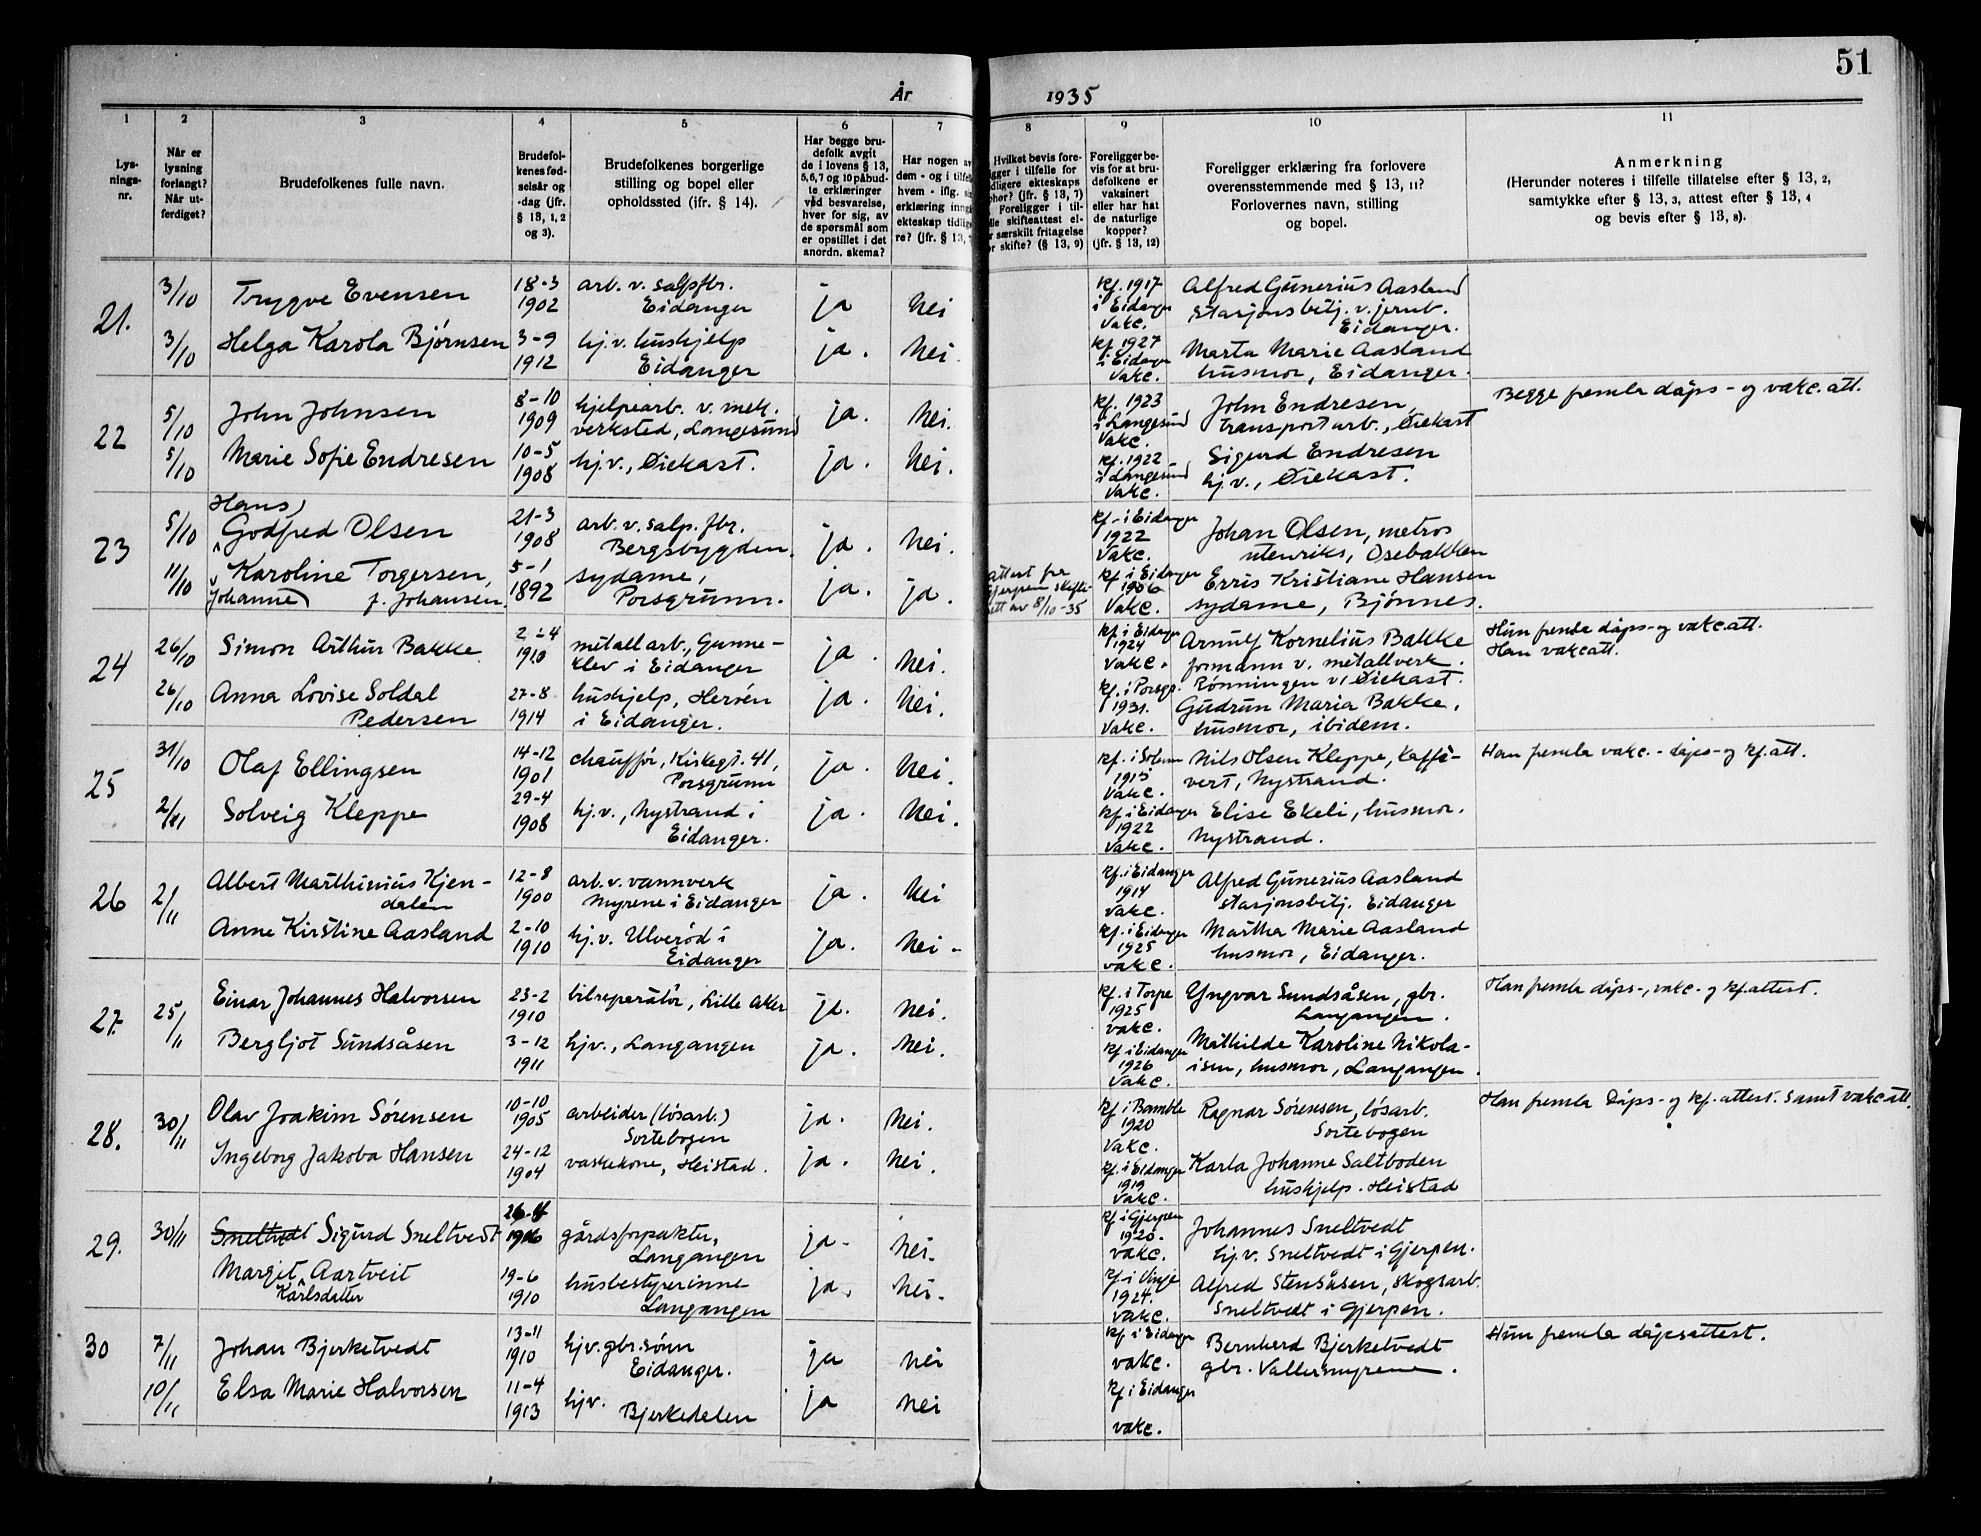 51
År 1935
1 2 3 4 5 6 7 8 9 10 11
Lys-
nings-
nr.
Når er
lysning
forlangt?
Når ut-
ferdiget?
Brudefolkenes fulle navn.
Brudefol-
kenes fød-
selsår og
-dag (jfr.
§ 13, 1, 2
og 3).
Brudefolkenes borgerlige
stilling og bopel eller
opholdssted (ifr. § 14).
Har begge bru-
defolk avgit
de i lovens § 13,
5,6,7 og 10 påbud-
te erklæringer
ved besvarelse,
hver for sig, av
de spørsmål som
er opstillet i det
anordn. skema?
Har nogen av
dem - og i tilfelle
hvem - iflg. sin
erklæring inngå
ekteskap tidlige
re? (jfr. § 13,
Hvilket bevis fore-
gger i tilfelle for
dligere ekteskaps
pher? (jfr. § 13, 7)
Foreligger i til-
lle skifteattest el-
r særskilt fritagelse
or skifte? (§ 13, 9)
Foreligger be-
vis for at bru-
defolkene er
vaksinert
eller har hat
de naturlige
kopper?
(jfr. § 13, 12)
Foreligger erklæring fra forlovere
overensstemmende med § 13, 11?
Forlovernes navn, stilling
og bopel.
Anmerkning
(Herunder noteres i tilfelle tillatelse efter § 13, 2,
samtykke efter § 13, 3, attest efter § 13, 4
og bevis efter § 13, 8).
21.
3/10 Trygve Evensen 18-3 1902 arb. v. salpfbr. Eidanger ja nei kf. 1917 i Eidanger Vakc.
3/10 Helga Karola Bjørnsen 3-9 1912 hj.v. hushjelp Eidanger ja. nei. kf 1927 i Eidanger Vakc.
Alfred Gunerius Aasland
stasjonsbetj. v. jernb.
Eidanger.
Marta Marie Aasland
husmor, Eidanger.
22
5/10 John Johnsen 8-10 1909 hjelpearb. v. mek. verksted, Langesund ja. nei. kf. 1923 i Langesund Vakc.
5/10 Marie Sofie Endresen 10-5 1908 hj.v., Øiekast. ja. nei. kf. 1922 i Langesund Vakc.
John Endresen,
transportarb., Øiekast
Sigurd Endresen
hj.v., Øiekast.
Begge fremla dåps- og vakc.att.
23
5/10 Hans Godfred Olsen 21-3 1908 arb. v. salp. fbr. Bergsbygden. ja. nei. kf. i Eidanger 1922 Vakc.
11/10 Johanne Karoline Torgersen, f. Johansen. 5-1 1892 sydame, Porsgrunn. ja. ja. attest fra Gjerpen skifte ett av 8/10-35 kf i Eidanger 1906 Vakc.
Johan Olsen, matros
utenriks, Osebakken
Erris Kristiane Hansen
sydame, Bjønnes.
24
26/10 Simon Arthur Bakke 2-4 1910 metallarb., Gunne-klev i Eidanger ja. nei. kf i Eidanger 1924 Vakc.
26/10 Anna Lovise Soldal Pedersen 27-8 1914 hushjelp, Herøen i Eidanger. ja. nei. kf. i Porsgr. 1931. Vakc.
Arnulf Kornelius Bakke
formann v. metallverk.
Rønningen v/ Øiekast.
Gudrun Maria Bakke,
husmor, ibidem.
Hun fremla dåps- og vakc.att.
Han vakcatt.
25
31/10 Olaf Ellingsen 14-12 1901 chauffør, Kirkegt. 41, Porsgrunn ja. nei. kf. i Solum 1915 Vakc.
2/11 Solveig Kleppe 29-4 1908 hj.v., Nystrand i Eidanger. ja. nei. kf i Eidanger 1922 Vakc.
Nils Olsen Kleppe, kaffe-
vert, Nystrand.
Elise Ekeli, husmor.
Nystrand.
Han fremla vakc.- dåps- og kf.att.
26
2/11 Albert Marthinius Kjen-dalen 12-8 1900 arb. v. vannverk Myrene i Eidanger ja. nei kf. i Eidanger 1914 vakc.
Anne Kirstine Aasland 2-10 1910 hj.v. Ulverød i Eidanger ja. nei- kf. i Eidanger 1925 vakc.
Alfred Gunerius Aasland
stasjonsbetj. Eidanger
Martha Marie Aasland
husmor, Eidanger.
27.
25/11 Einar Johannes Halvorsen 23-2 1910 bilreparatør, Lille Aker ja. nei. kf. i Torpe 1925 vakc.
Bergljot Sundsåsen 3-12 1911 hjv., Langangen ja. nei. kf i Eidanger 1926 Vakc.
Yngvar Sundsåsen, gbr.
Langangen.
Mathilde Karoline Nikola-
isen, husmor, Langangen.
Han fremla dåps-, vakc- og kf.attest.
28.
30/11 Olav Joakim Sørensen 10-10 1905 arbeider (løsarb.) Sortebogen ja. nei. kf i Bamble 1920 Vakc.
Ingeborg Jakoba Hansen 24-12 1904 vaskekone, Heistad. ja. nei. kf. i Eidanger 1919 Vakc.
Ragnar Sørensen, løsarb.
Sortebogen
Karla Johanne Saltboden
hushjelp. Heistad
Han fremla dåps- og kf.attest. samt vakcatt.
29.
30/11 Sneltvedt Sigurd Sneltvedt 1906 gårdsforpakter, Langangen ja- nei- kf i Gjerpen 1920. vakc.
Margit Karlsdatter Aartveit 19-6 1910 husbestyrerinne Langangen ja. nei- kf-i Vinje 1924. vakc.
Johannes Sneltvedt
hj.v. Sneltvedt i Gjerpen.
Alfred Stensåsen, skogsarb.
Sneltvedt i Gjerpen.
30
7/11 Johan Bjerketvedt 13-11 1910 hjv. gbr.sønn Eidanger. ja nei kf i Eidanger vakc.
10/11 Elsa Marie Halvorsen 11-4 1913 hjv. Bjerkedalen ja nei kf i Eidanger vakc.
Bernhard Bjerketvedt
gbr. Vallermyrene.
Hun fremla dåpsattest.